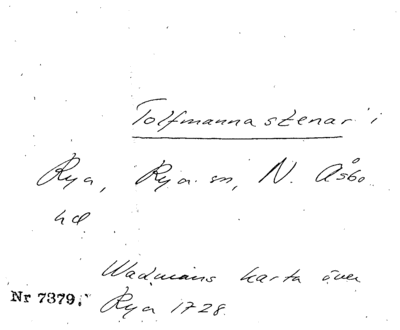 Tolfmannastenar i
Rya, Rya sn, N. Åsbo
hd
Wadmans karta över
Nr 7379. Rya 1728.